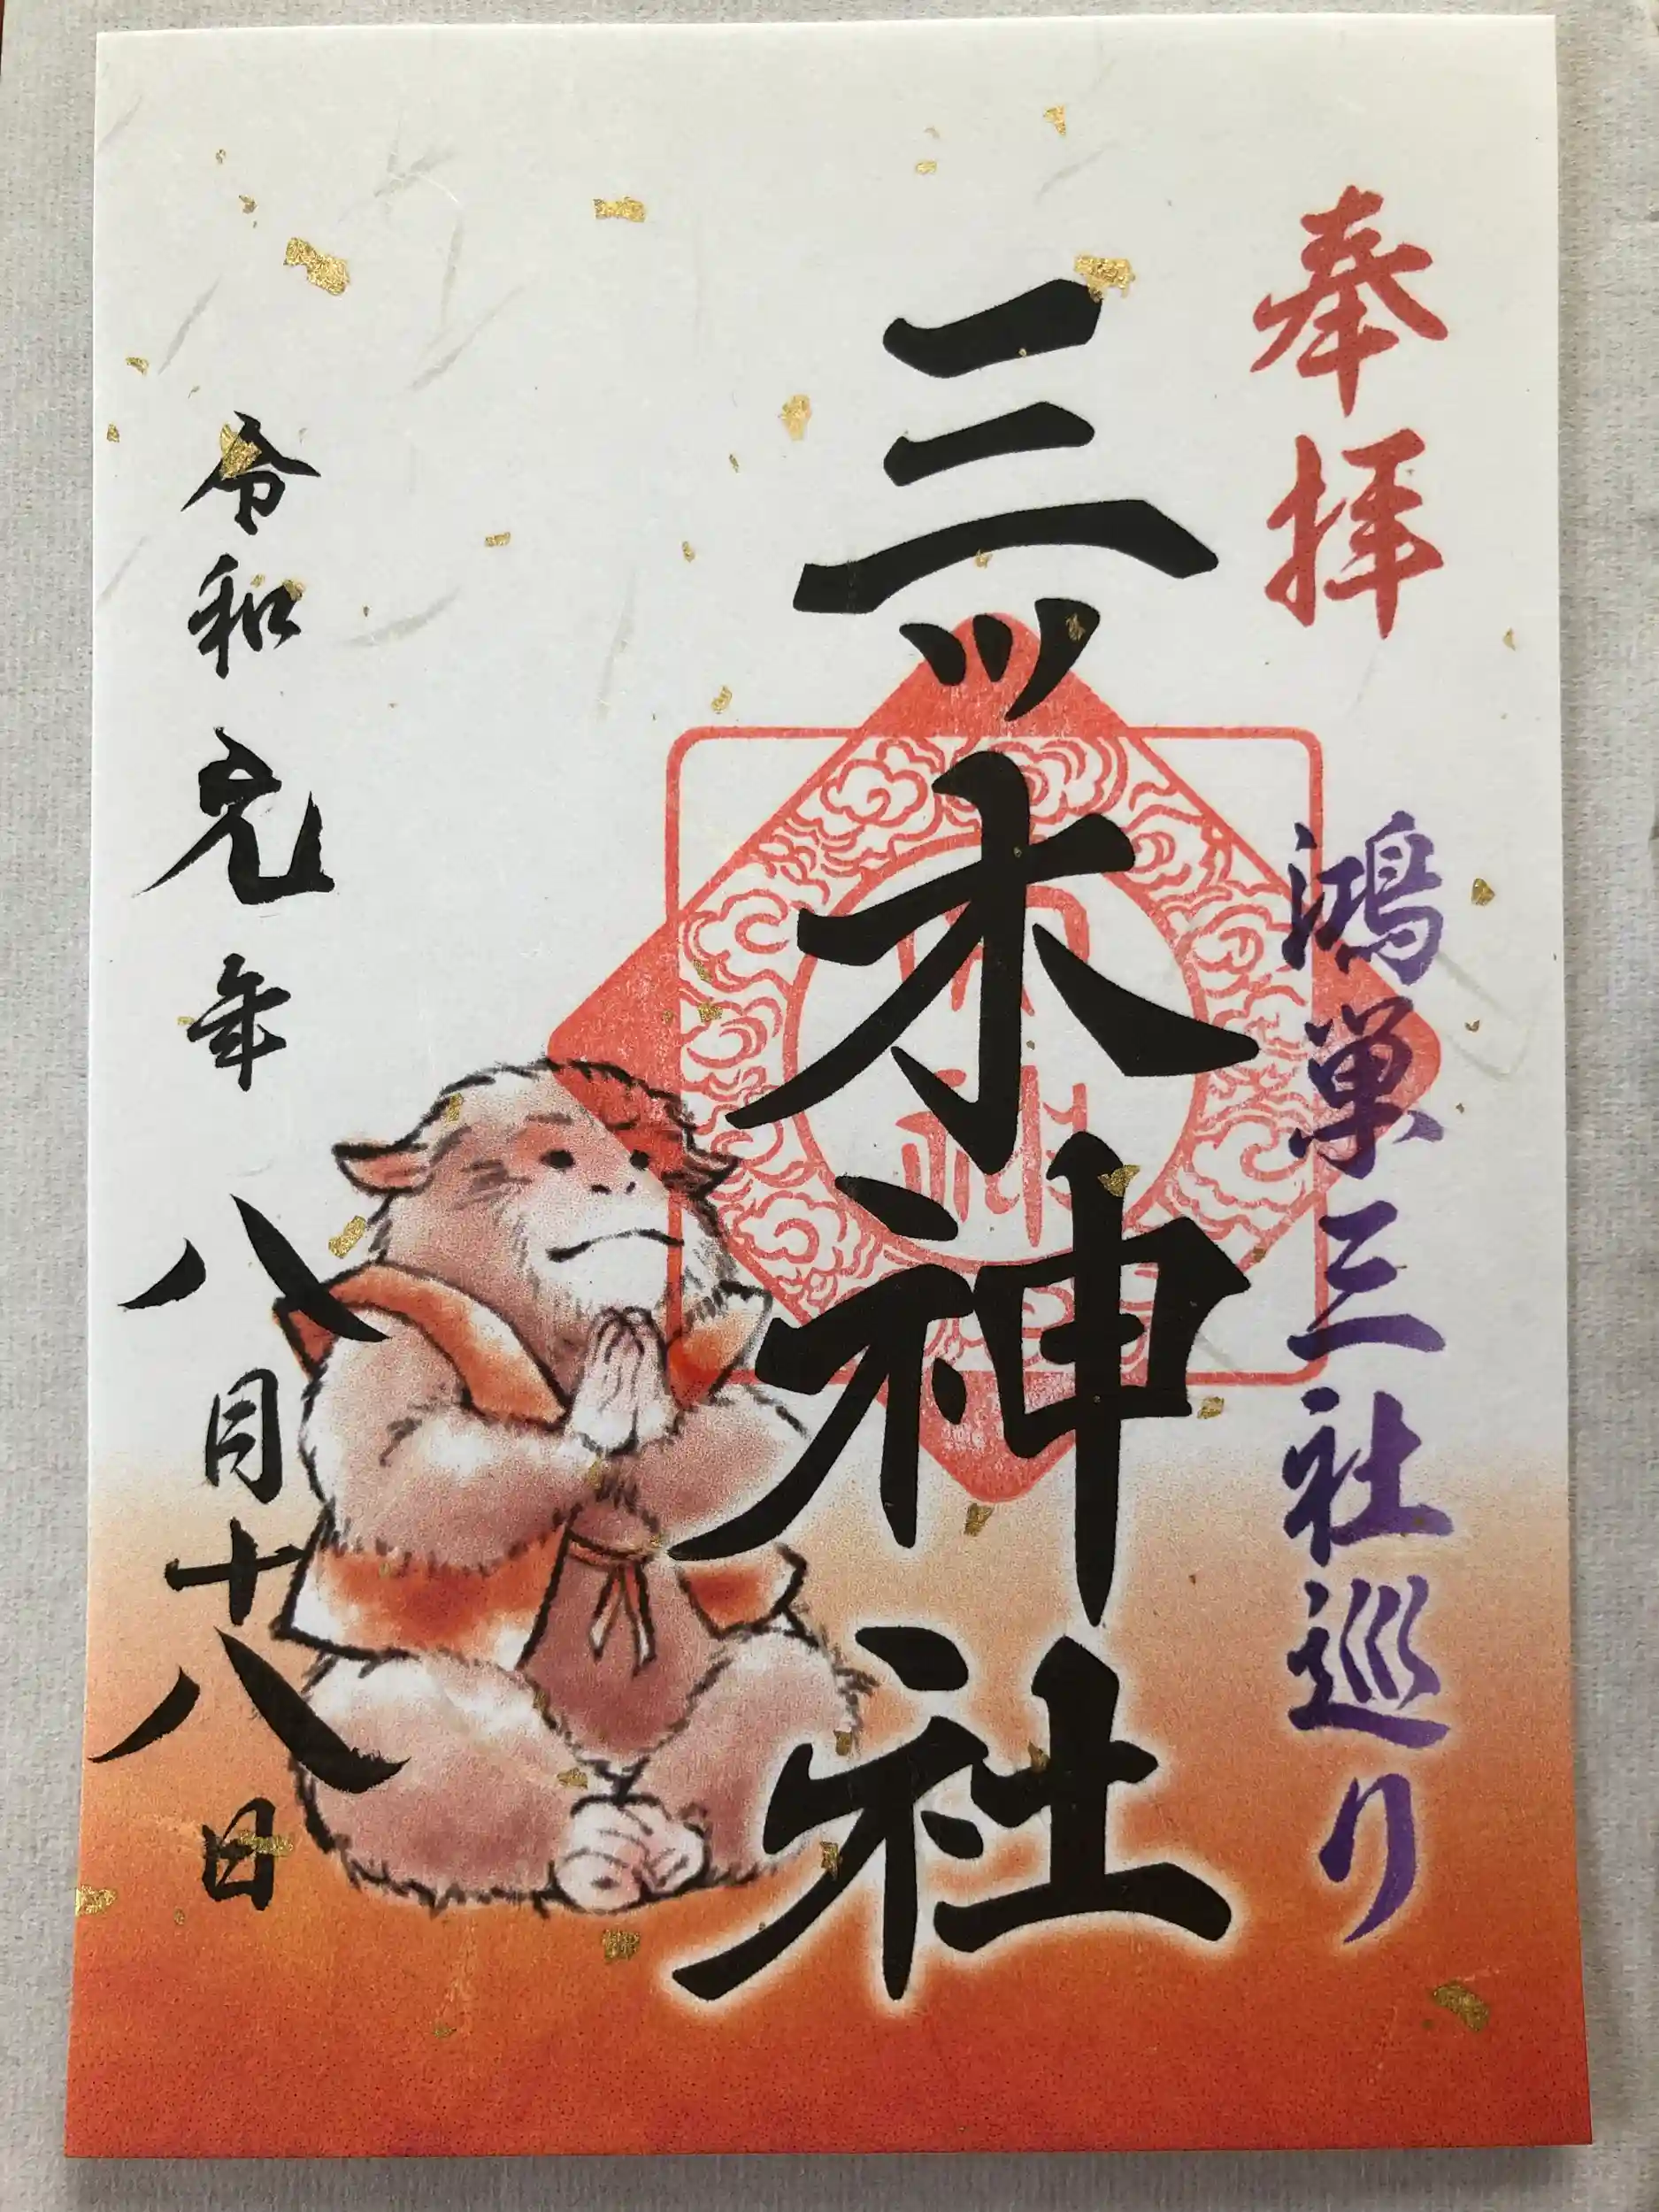 奉拝
鴻巣三社巡り
三ッ木神社
令和元年八月十八日